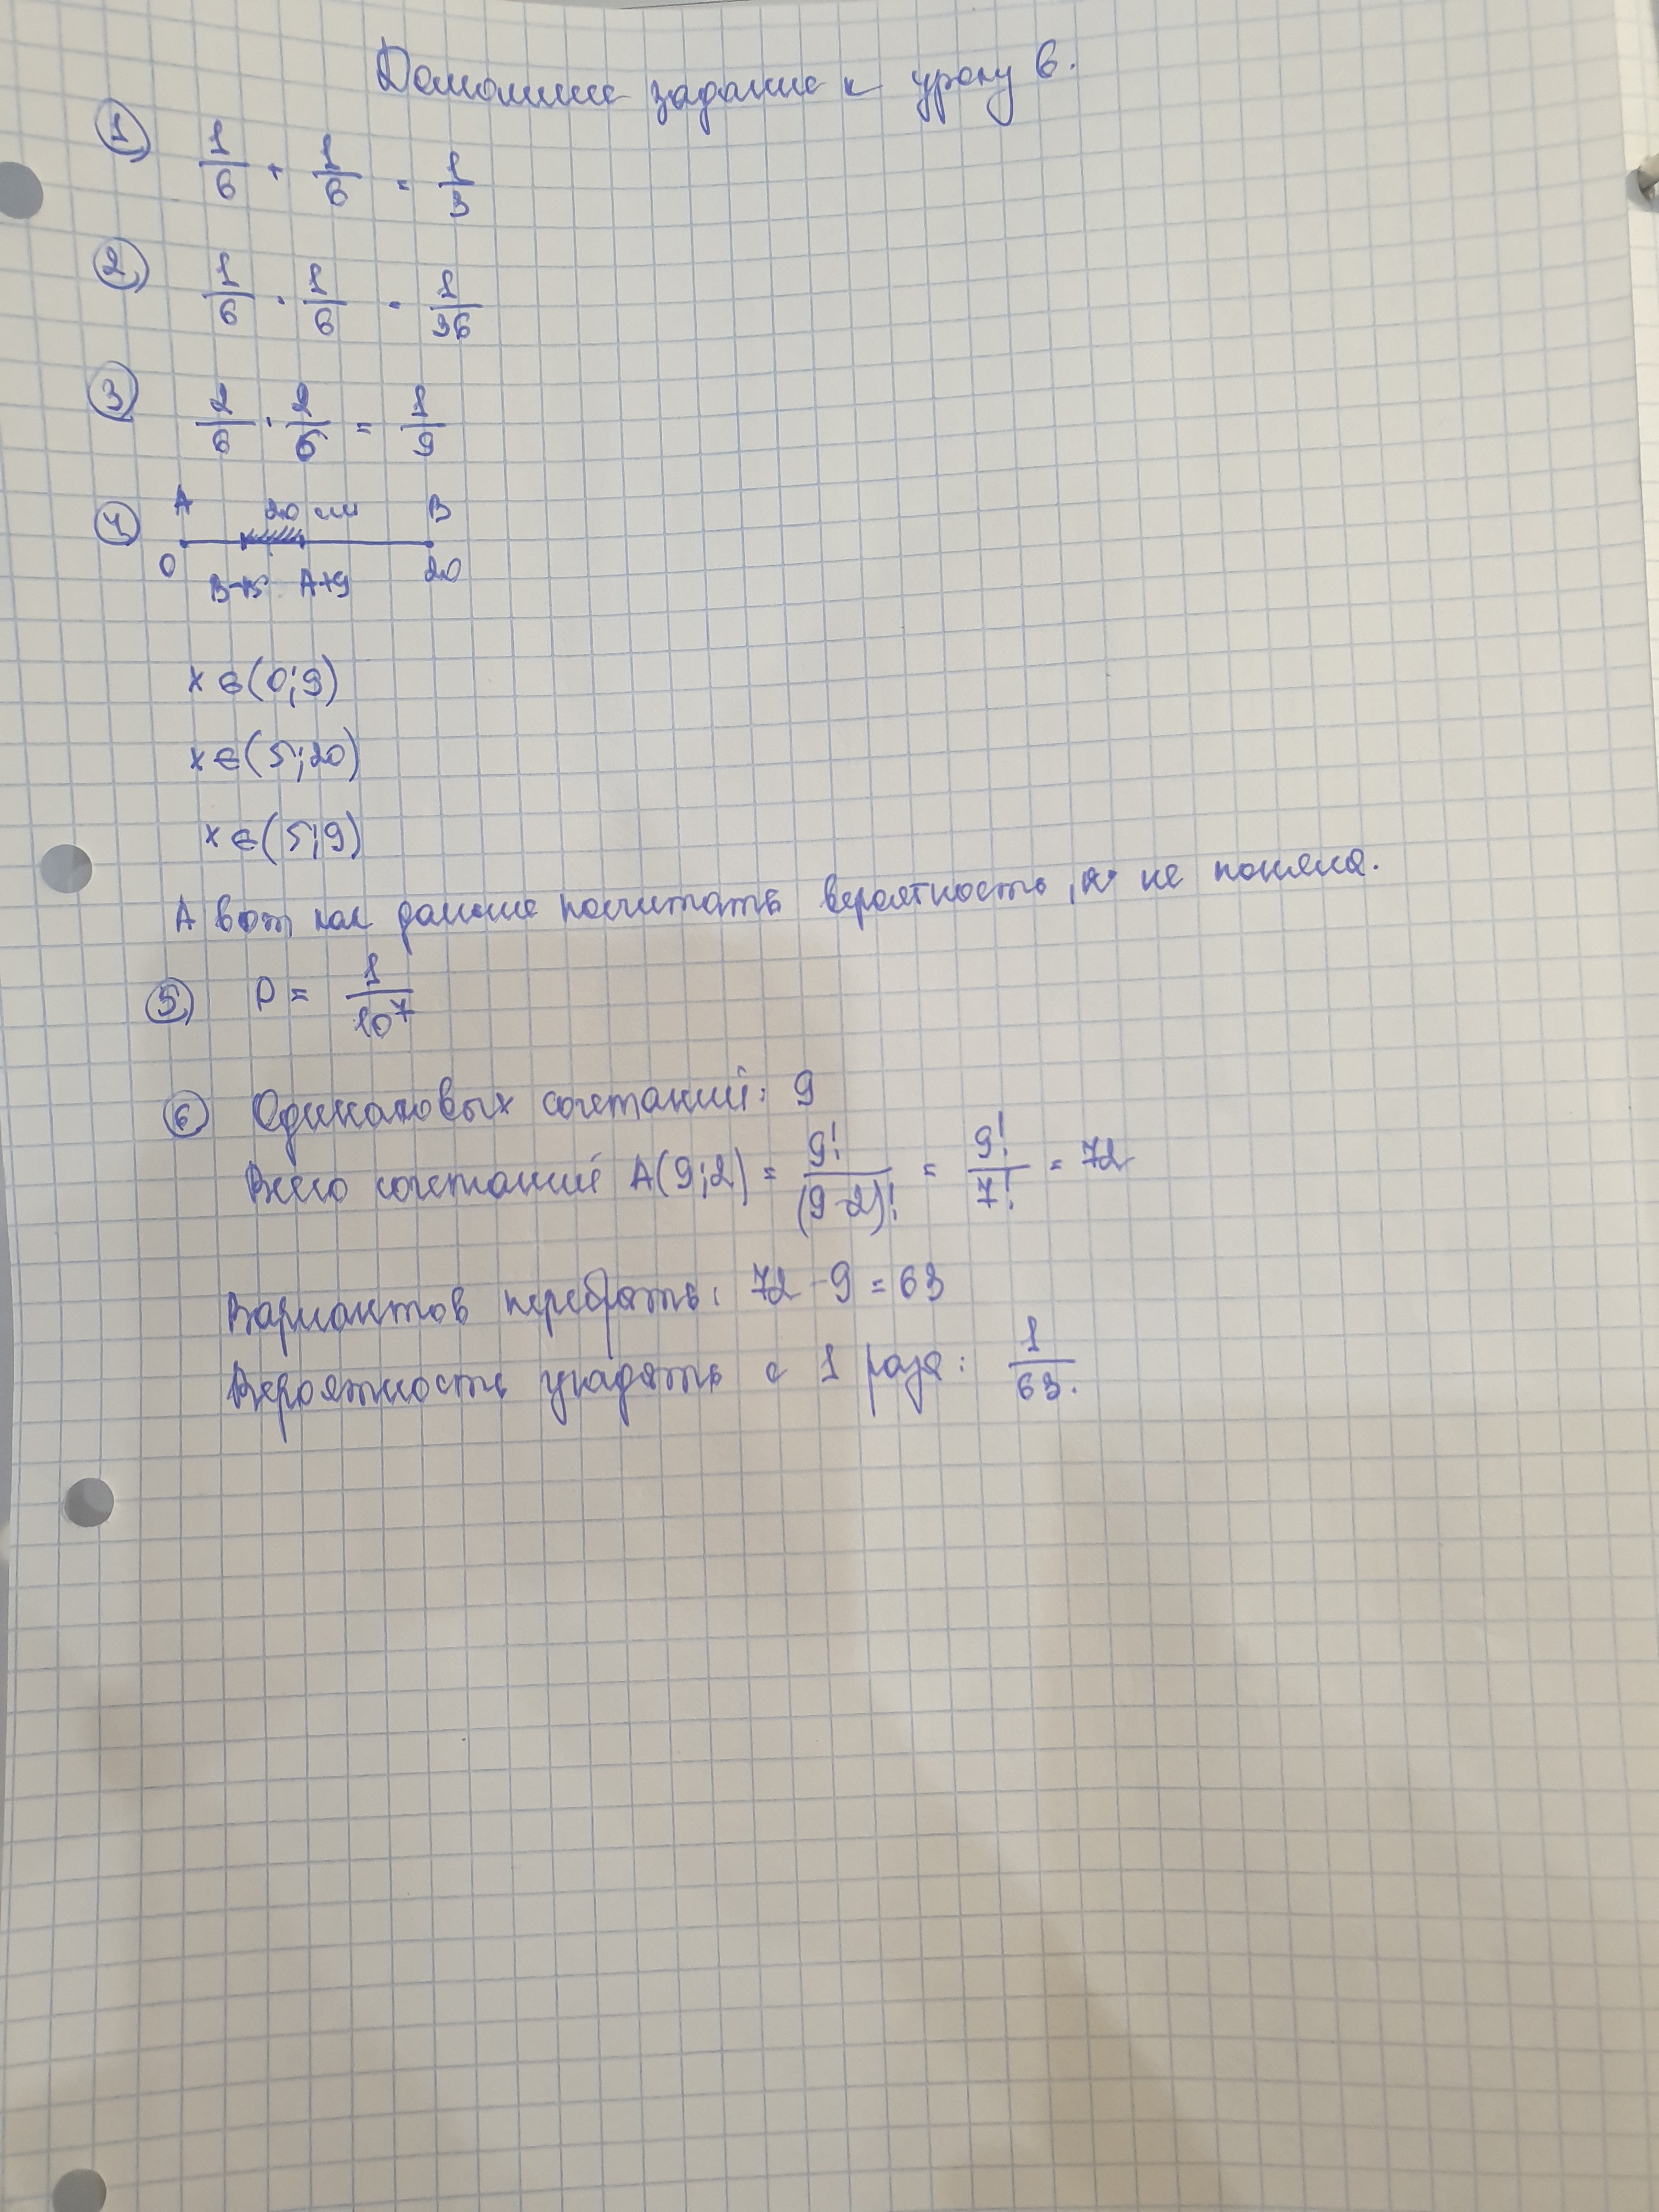 Домашнее задание к уроку 6.
① 1/6 + 1/6 = 1/3
② 1/6 · 1/6 = 1/36
③ 2/6 · 2/6 = 1/9
④ A 20 см B
0 20
B-15 A+9
x ∈ (0;9)
x ∈ (5;20)
x ∈ (5;9)
А вот как дальше посчитать вероятность, я не поняла.
⑤ P = 1/10⁷
⑥ Одинаковых сочетаний: 9
Всего сочетаний A(9;2) = 9!/(9-2)! = 9!/7! = 72
Вариантов перебрать: 72 - 9 = 63
Вероятность угадать с 1 раза: 1/63.